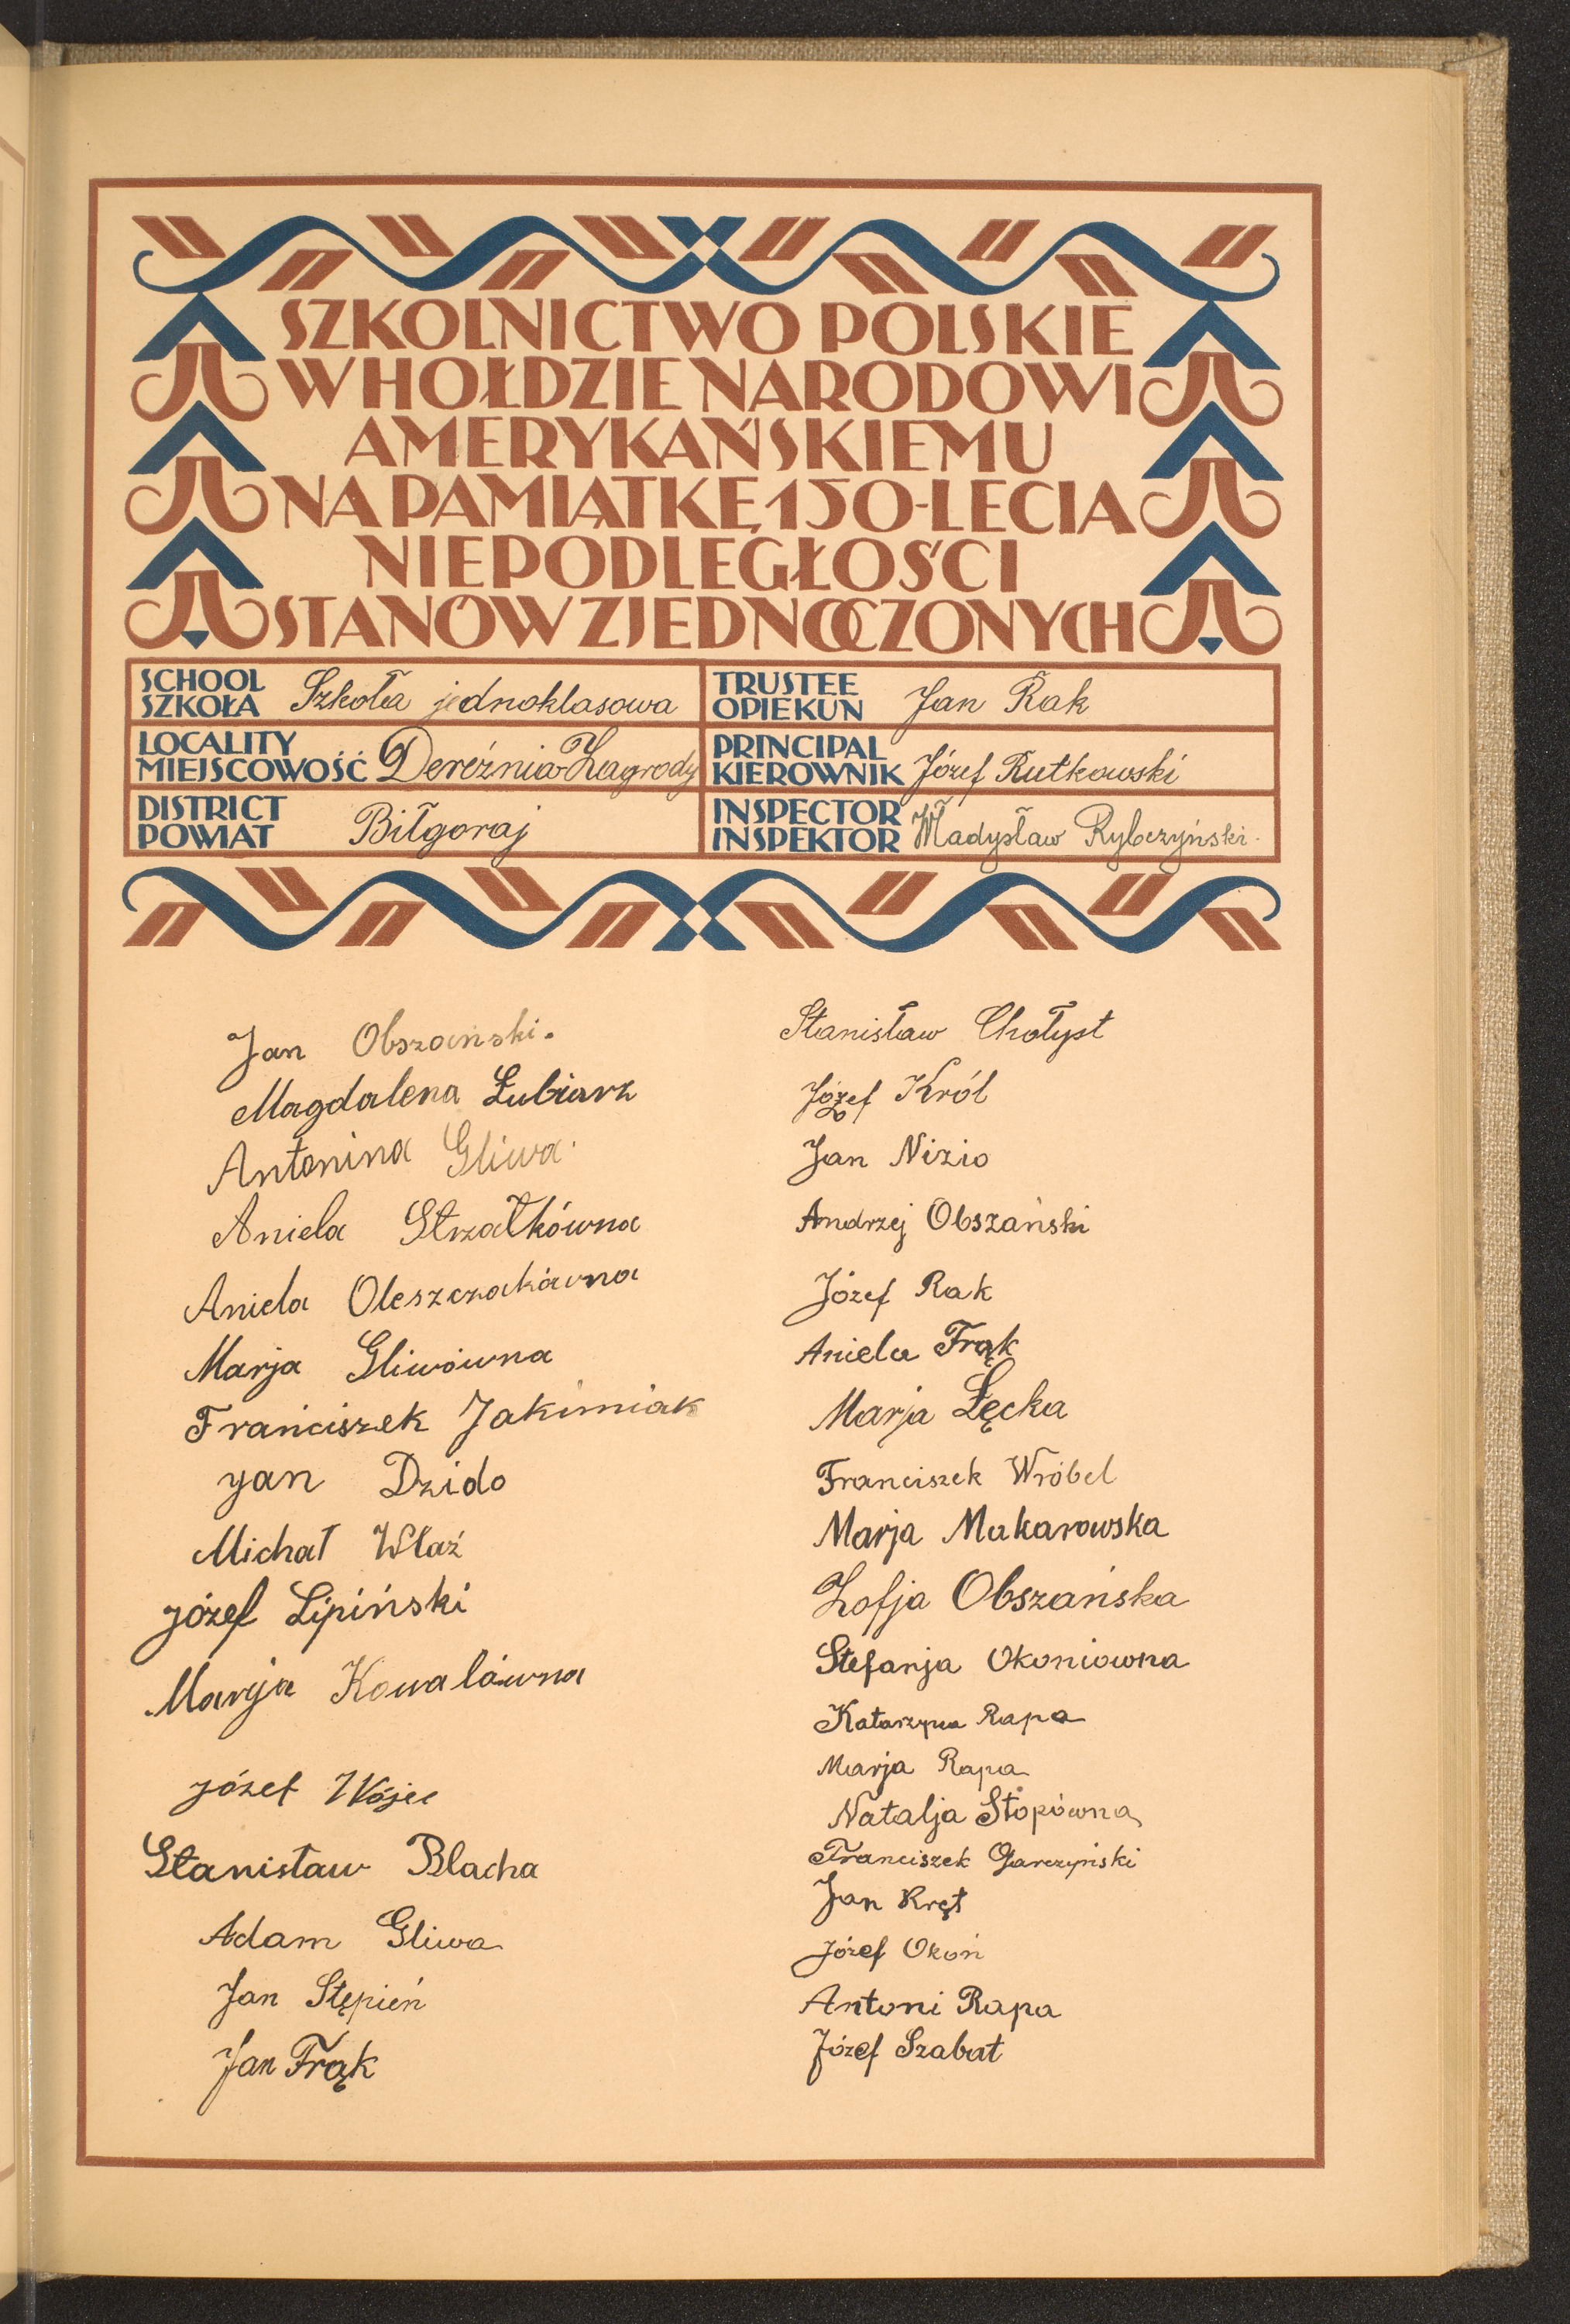 SZKOLNICTWO POLSKIE
W HOŁDZIE NARODOWI
AMERYKAŃSKIEMU
NA PAMIĄTKĘ 150-LECIA
NIEPODLEGŁOŚCI
STANÓW ZJEDNOCZONYCH
SCHOOL
SZKOŁA Szkoła jednoklasowa
TRUSTEE
OPIEKUN Jan Rak
LOCALITY
MIEJSCOWOŚĆ Dereźnia-Zagrody
PRINCIPAL
KIEROWNIK Józef Rutkowski
DISTRICT
POWIAT Biłgoraj
INSPECTOR
INSPEKTOR Władysław Rybczyński.
Jan Obszański.
Magdalena Łubiarz
Antonina Gliwa.
Aniela Strzałkówna
Aniela Oleszczakówna
Marja Gliwówna
Franciszek Jakimiak
Jan Dzido
Michał Właź
Józef Lipiński
Marija Kowalówna
Józef Wójci
Stanisław Blacha
Adam Gliwa
Jan Stępień
Jan Frąk
Stanisław Chołyst
Józef Król
Jan Nizio
Andrzej Obszański
Józef Rak
Aniela Frąk
Marja Łęcka
Franciszek Wróbel
Marja Makarowska
Zofja Obszańska
Stefanja Okoniowna
Katarzyna Rapa
Marja Rapa
Natalja Stopówna
Franciszek Garczyński
Jan Kręt
Józef Okoń
Antoni Rapa
Józef Szabat